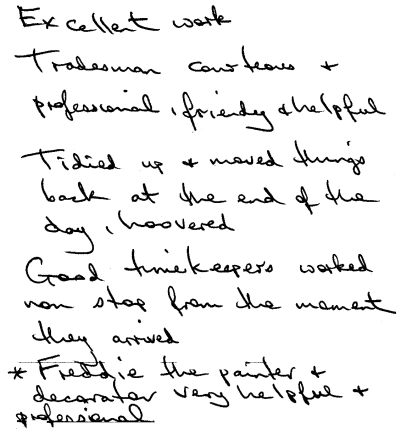 Excellent work
Tradesman courteous +
professional, friendly & helpful
Tidied up + moved things
back at the end of the
day, hoovered
Good timekeepers worked
non stop from the moment
they arrived
* Freddie the painter +
decorator very helpful +
professional